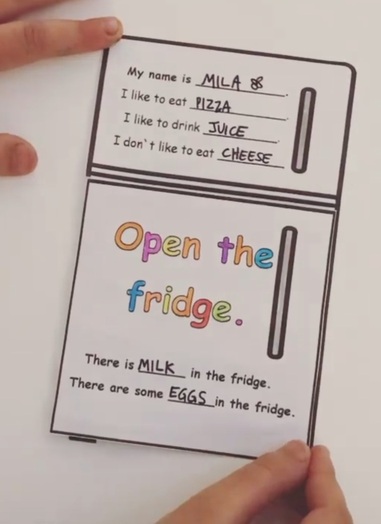 My name is MILA.
I like to eat PIZZA.
I like to drink JUICE.
I don't like to eat CHEESE
Open the
fridge.
There is MILK in the fridge.
There are some EGGS in the fridge.